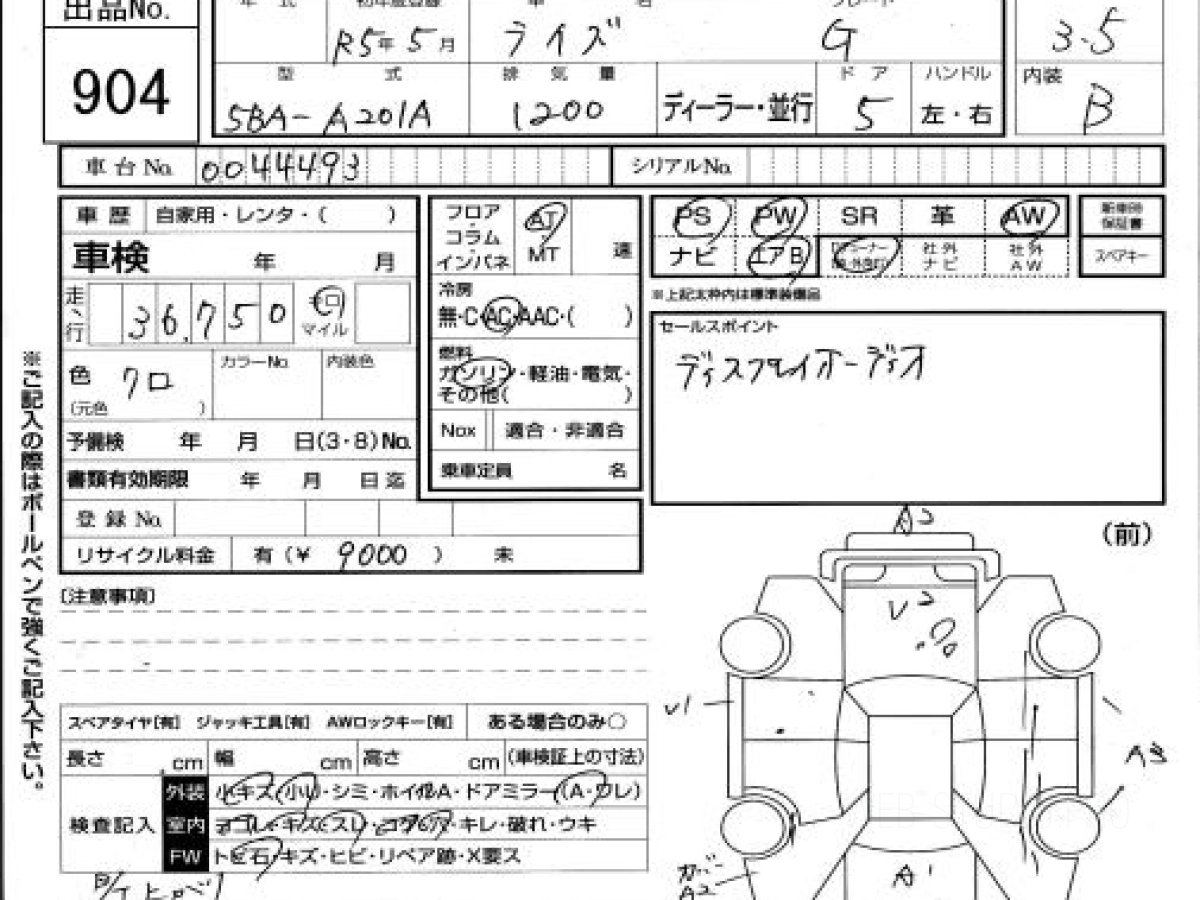 出品No.
904
年 式
初年度登録
車 名
グレード
R5年 5月
ライズ
G
3.5
型 式
排 気 量
ディーラー・並行
ド ア
ハンドル
内装
5BA-A201A
1200
5
左・右
B
車台No.
0044493
シリアルNo.
車 歴
自家用・レンタ・( )
車検 年 月
走行
36,750
キロ
マイル
色
クロ
(元色 )
カラーNo.
内装色
予備検 年 月 日(3・8)No.
書類有効期限 年 月 日迄
登録No.
リサイクル料金
有(¥ 9000 ) 未
フロア
・
コラム
・
インパネ
AT
MT
速
冷房
無・C・AC・AAC・( )
燃料
ガソリン・軽油・電気・
その他( )
Nox
適合・非適合
乗車定員 名
PS
PW
SR
革
AW
新車時
保証書
ナビ
エアB
社外
ナビ
社外
AW
スペアキー
※上記太枠内は標準装備品
セールスポイント
ディスプレイオーディオ
(前)
A2
V2
V1
A3
カバー
A2
A1
〔注意事項〕
スペアタイヤ[有] ジャッキ工具[有] AWロックキー[有]
ある場合のみ○
長さ cm
幅 cm
高さ cm
(車検証上の寸法)
検査記入
外装
小キズ・小凹・シミ・ホイルA・ドアミラー(A・ワレ)
室内
ヨゴレ・キズ・スレ・コゲ穴・キレ・破れ・ウキ
FW
トビ石・キズ・ヒビ・リペア跡・X要ス
※ご記入の際はボールペンで強くご記入下さい。